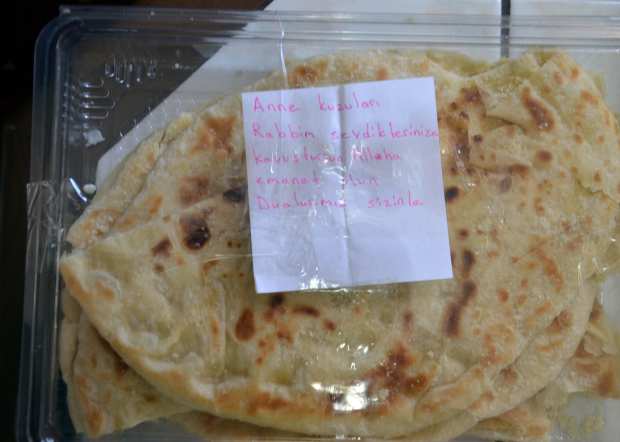 Anne kuzuları
Rabbim sevdiklerinize
kavuştursun Allaha
emanet olun
Dualarımız sizinle